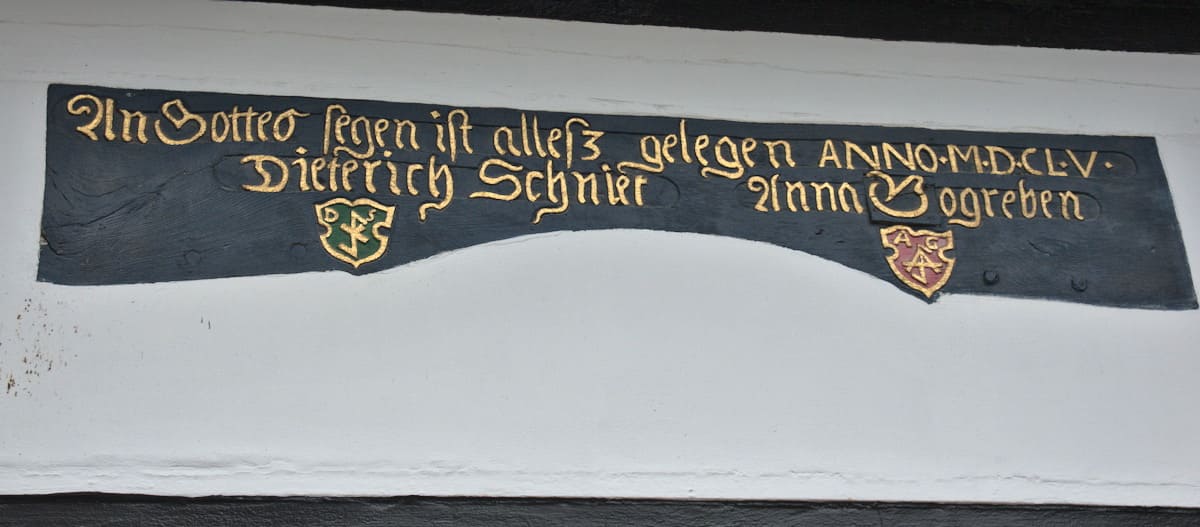 An Gottes segen ist alleſz gelegen ANNO·M·D·CL·V·
Dieterich Schnier Anna Gogreben
D S
A G